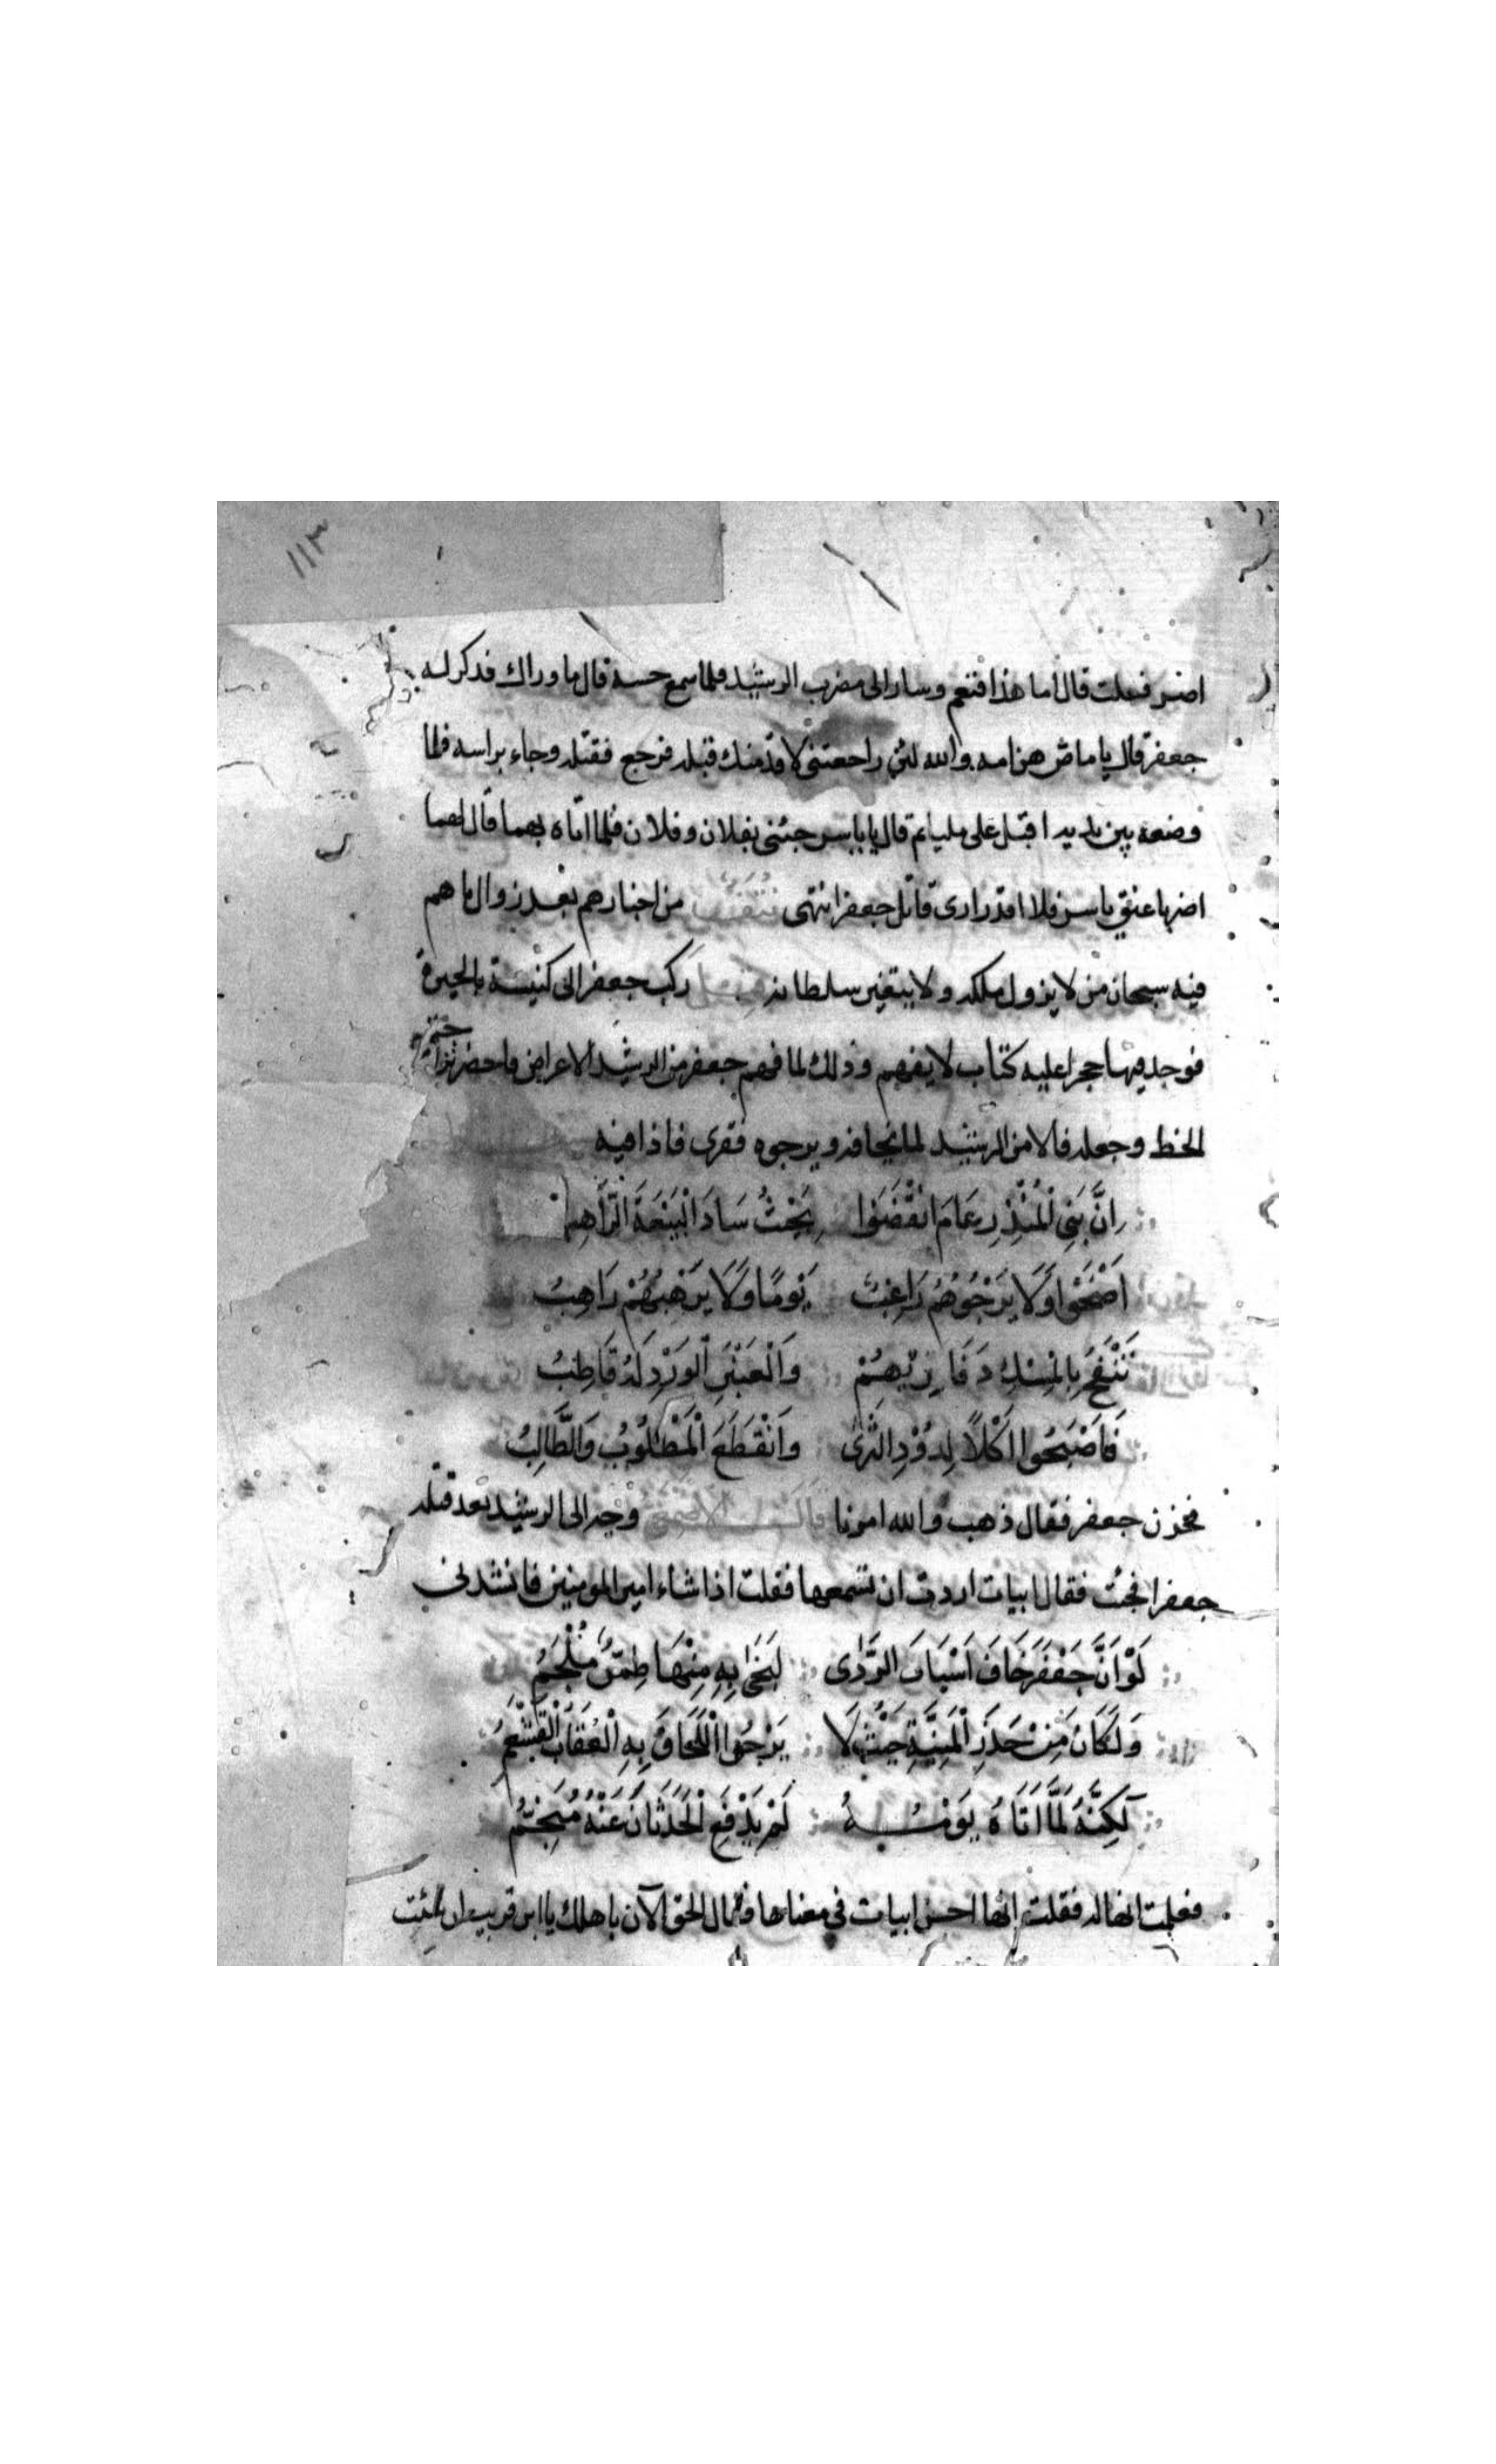 ١١٣
اضر فعلت قال اما هذا فنعم وسار الى مضرب الرشيد فلما سمع حسه قال ما وراك فذكر له
جعفر قال يا ماص هن امه والله لئن راجعتنى لاقدمنك قبله فرجع فقتله وجاء براسه فلما
وضعه بين يديه اقبل على مليا ثم قال يا ياسر جئنى بفلان وفلان فلما اتاه بهما قال لهما
اضربا عنق ياسر فلا اقدر ارى قاتل جعفر انتهى من اخبارهم بعد زوال ما هم
فيه سبحان من لا يزول ملكه ولا يتغير سلطانه ركب جعفر الى كنيسة بالحيرة
فوجد فيها حجرا عليه كتاب لا يفهم وذلك لما فهم جعفر من الرشيد الاعراض فاحضر تراجمة
الخط وجعله فالا من الرشيد لما يخافه ويرجوه فقرى فاذا فيه
اِنَّ بَنِي الْمُنْذِرِ عَامَ انْقَضَوا بِحَيْثُ سَادَ الْبَيْعَةَ الرَّاهِبُ
اَضْحَوْا وَلَا يَرْجُوهُمُ رَاغِبٌ يَوْمًا وَلَا يَرْهَبُهُمْ رَاهِبُ
تَنْفَحُ بِالْمِسْكِ دَفَارِيْهِمْ وَالْعَنْبَرِ الْوَرْدِ لَهُ قَاطِبُ
فَاصْبَحُوا اَكْلًا لِدُوْدِ الثَّرٰى وَانْقَطَعَ الْمَطْلُوبُ وَالطَّالِبُ
فحزن جعفر فقال ذهب والله امرنا قال الاصمعى وجه الى الرشيد بعد قتله
جعفرا فجئت فقال ابيات اردت ان تسمعها فقلت اذا شاء امير المومنين فانشدنى
لَوْ اَنَّ جَعْفَرَ خَافَ اَسْبَابَ الرَّدٰى لَنَجَى بِهِ مِنْهَا طِمِرٌّ مُلْجَمُ
وَلَكَانَ مِنْ حَذَرِ الْمَنِيَّةِ حَيْثُ لَا يَرْجُوا اللَّحَاقَ بِهِ الْعُقَابُ الْقَشْعَمُ
لَكِنَّهُ لَمَّا اَتَاهُ يَوْمُهُ لَمْ يَدْفَعِ الْحَدَثَانَ عَنْهُ مُنَجِّمُ
فعلمت انها له فقلت انها احسن ابيات فى معناها فقال الحق الآن باهلك يا ابن قريب ان شئت